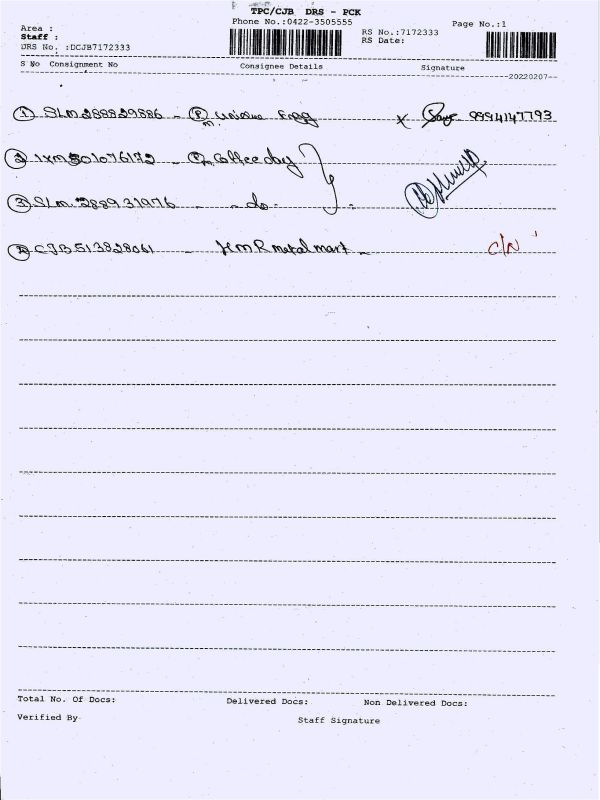 TPC/CJB DRS - PCK
Phone No.:0422-3505555
Page No.:1
Area :
Staff :
DRS No. :DCJB7172333
RS No.:7172333
RS Date:
S No Consignment No Consignee Details Signature
20220207
1 SLM288829886 - Unique Engg x 9994147793
3 SLM 288931976 - - do -
CJB513828061 - HMR metal mart - C/N
Total No. Of Docs: Delivered Docs: Non Delivered Docs:
Verified By Staff Signature